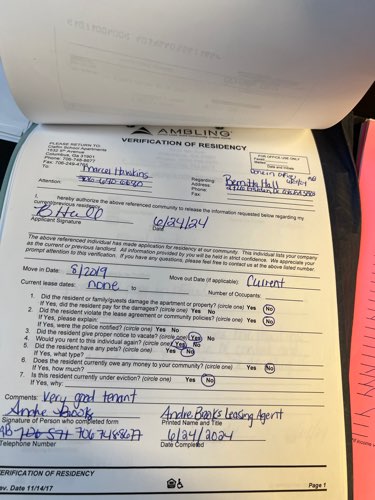 AMBLING
VERIFICATION OF RESIDENCY
PLEASE RETURN TO:
Claflin School Apartments
1532 5th Avenue
Columbus, GA 31901
Phone: 706-748-8677
Fax: 706-249-4764
To: Marcel Hawkins
Attention:
FOR OFFICE USE ONLY
Faxed:
Mailed:
Date and Initials
Regarding:
Address:
Phone:
Fax:
I, hereby authorize the above referenced community to release the information requested below regarding my
current/previous residency.
B Hall 6/24/24
Applicant Signature Date
The above referenced individual has made application for residency at our community. This individual lists your company
as the current or previous landlord. All information provided by you will be held in strict confidence. We appreciate your
prompt attention to this verification. If you have any questions, please feel free to contact us at the above listed number.
Move in Date: 8/2019 Move out Date (if applicable): Current
Current lease dates: none to Number of Occupants:
1. Did the resident or family/guests damage the apartment or property? (circle one) Yes No
If Yes, did the resident pay for the damages? (circle one) Yes No
2. Did the resident violate the lease agreement or community policies? (circle one) Yes No
If Yes, please explain:
If Yes, were the police notified? (circle one) Yes No
3. Did the resident give proper notice to vacate? (circle one) Yes No
4. Would you rent to this individual again? (circle one) Yes No
5. Did the resident have any pets? (circle one) Yes No
If Yes, what type?
6. Does the resident currently owe any money to your community? (circle one) Yes No
If Yes, how much?
7. Is this resident currently under eviction? (circle one) Yes No
If Yes, why:
Comments: Very good tenant
Andre Brooks Andre Brooks Leasing Agent
Signature of Person who completed form Printed Name and Title
706 748-8677 6/24/2024
Telephone Number Date Completed
VERIFICATION OF RESIDENCY
Rev. Date 11/14/17 Page 1